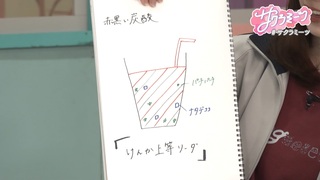 赤黒い炭酸
パチパチ
ナタデココ
『けんか上等ソーダ』
サクラミーツ
#サクラミーツ